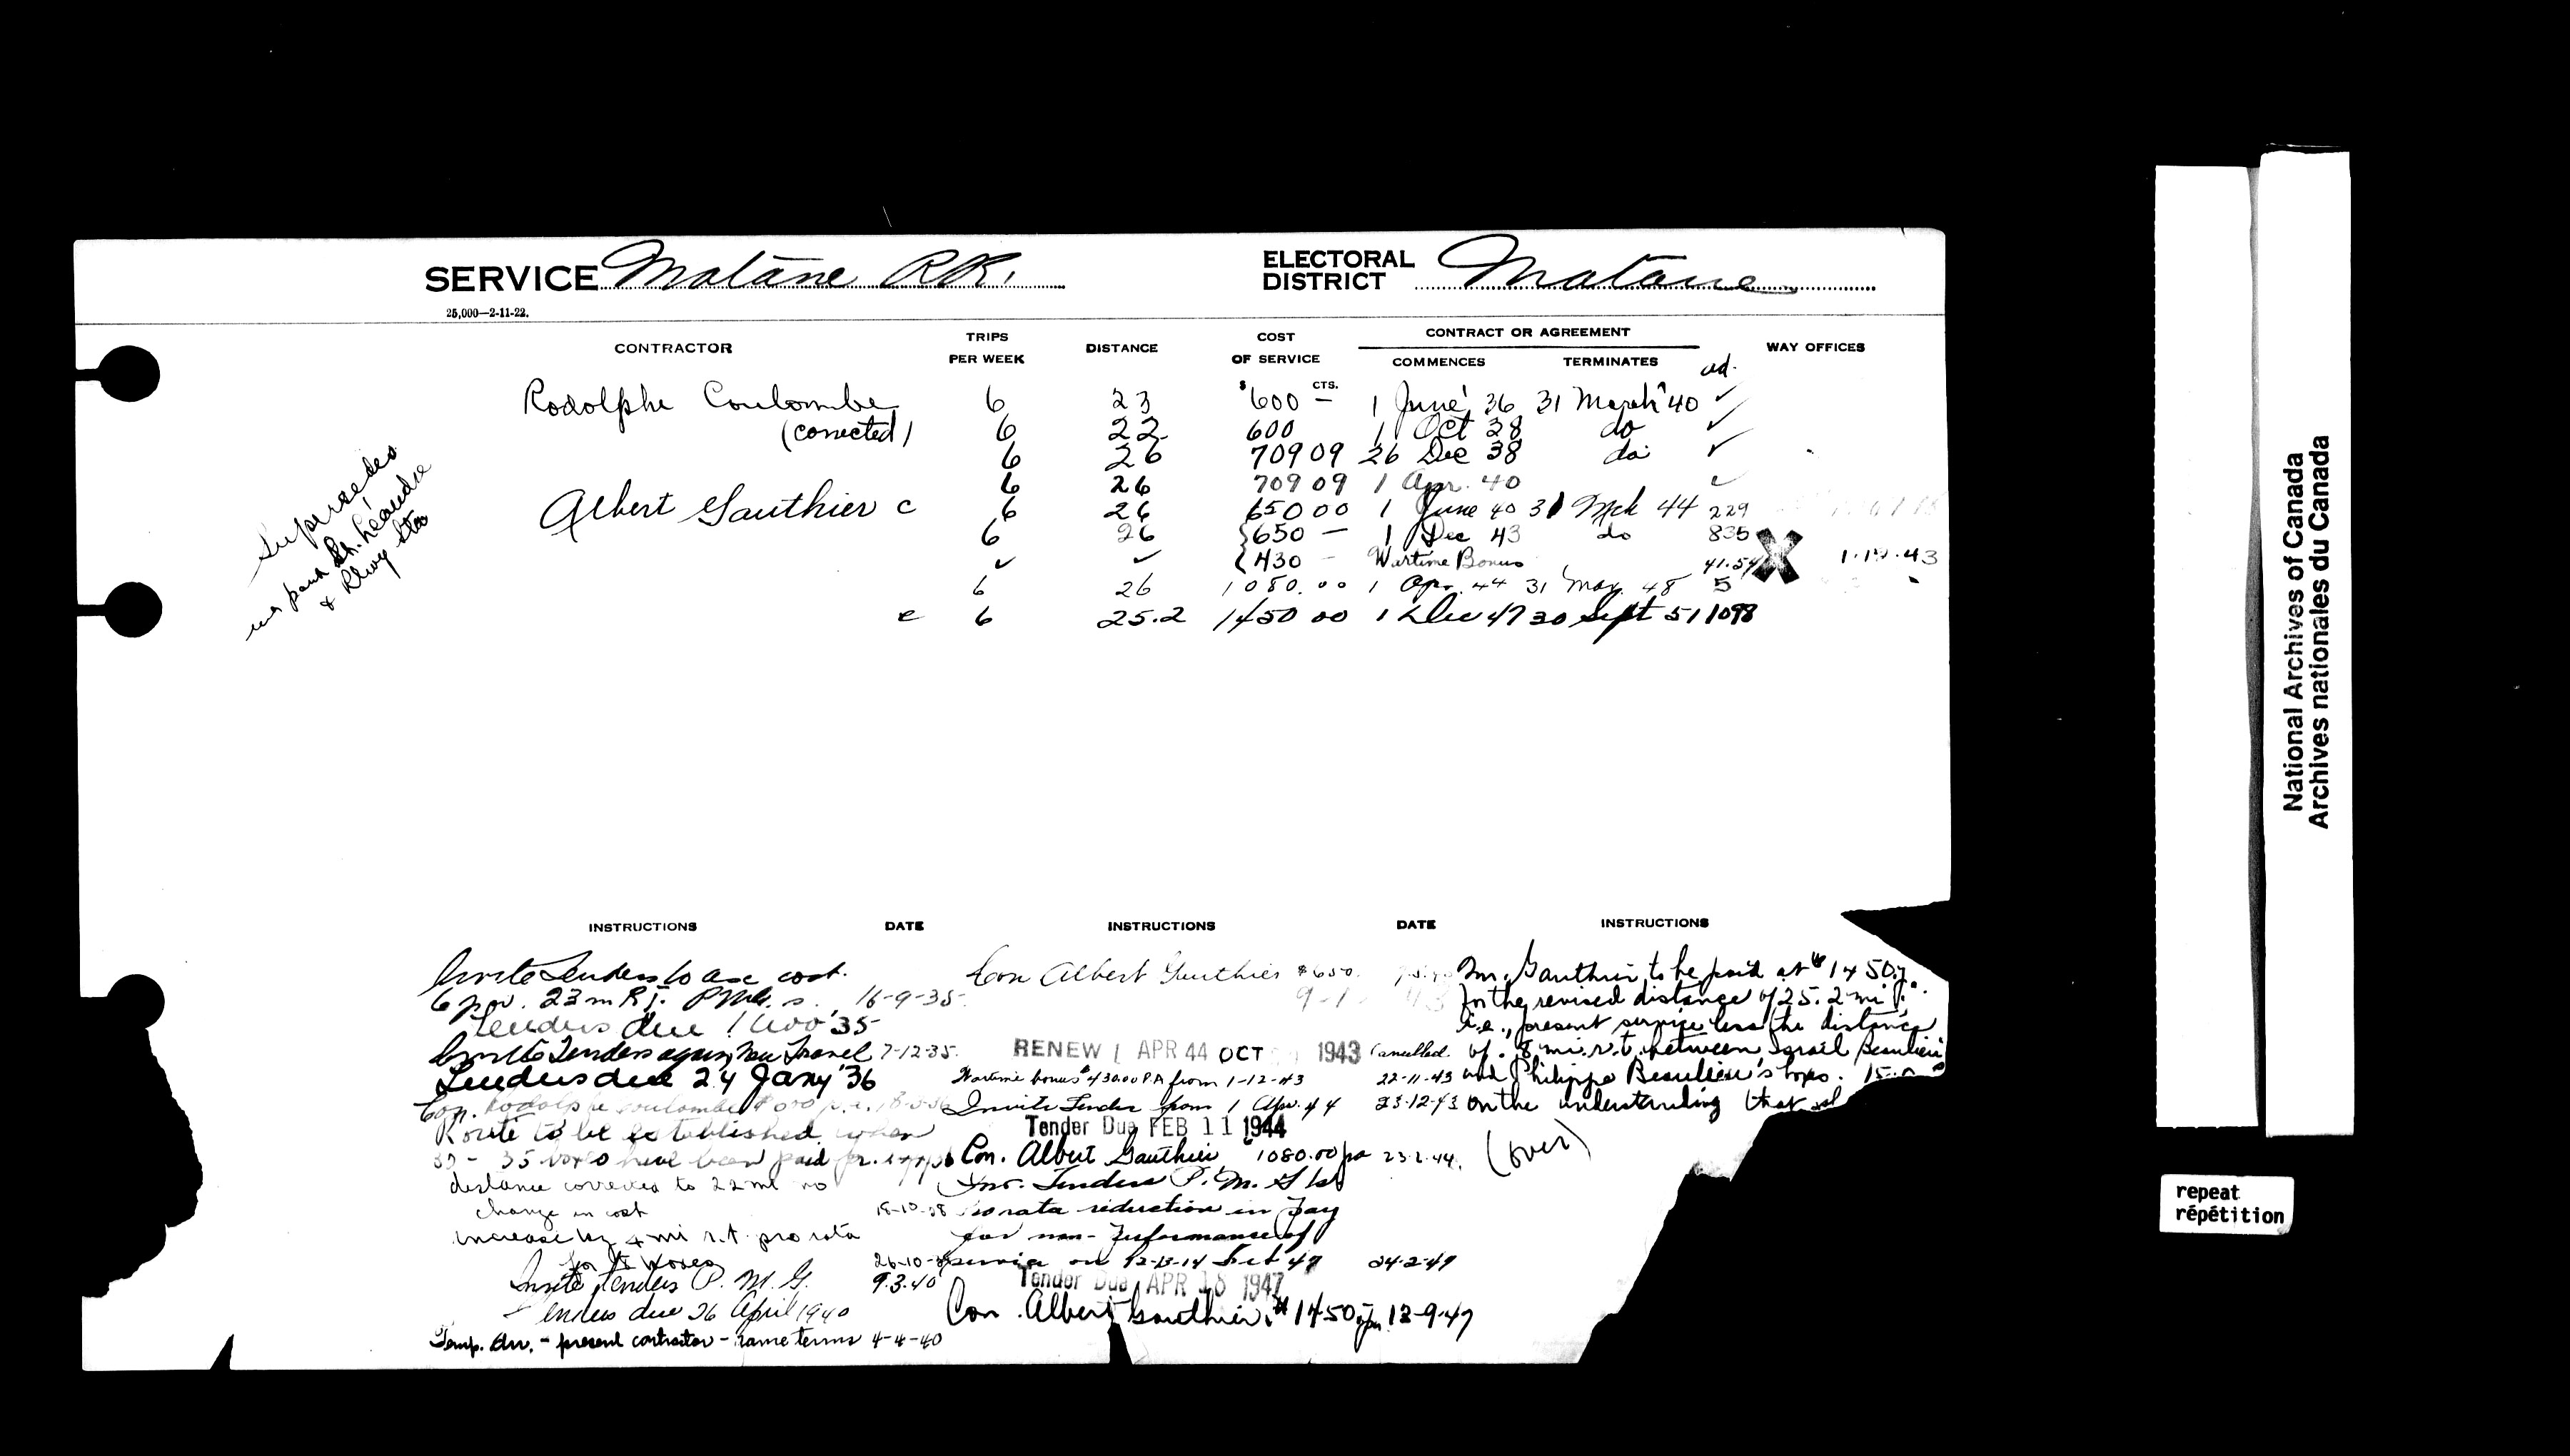 SERVICE Matane RR. ELECTORAL DISTRICT Matane
25,000—2-11-22.
CONTRACTOR TRIPS PER WEEK DISTANCE COST OF SERVICE CONTRACT OR AGREEMENT COMMENCES TERMINATES WAY OFFICES
ad.
$ CTS.
Rodolphe Coulombe 6 23 600 — 1 June 36 31 March 40 ✓
(corrected) 6 22 600 1 Oct 38 do ✓
6 26 709 09 26 Dec 38 do ✓
6 26 709 09 1 Apr. 40 ✓
Albert Gauthier c 6 26 650 00 1 June 40 31 Mch 44 229
6 26 {650 — 1 Dec 43 do 835
✓ ✓ {430 — Wartime Bonus 41.54 X 1.12.43
6 26 1080.00 1 Apr. 44 31 Mar. 48 5
c 6 25.2 1450 00 1 Dec 47 30 Sept 51 1098
Supersedes
St. Léandre
& Rlwy Stn
INSTRUCTIONS DATE INSTRUCTIONS DATE INSTRUCTIONS
Invite Tenders to asc cost.
6 pw. 23 m R.T. PMG. 16-9-35
Tenders due 1 Nov '35
Invite Tenders again New Travel 7-12-35
Tenders due 24 Jany '36
Con. Rodolphe Coulombe
Route to be established when
35 boxes have been paid for.
distance corrected to 22 mi no
change in cost 18-10-38
increase by 4 mi r.t. pro rata
for boxes 26-10-38
Invite Tenders P. M. G. 9.3.40
Tenders due 26 April 1940
Temp. Arr. - present contractor - same terms 4-4-40
Con Albert Gauthier $650.
RENEW 1 APR 44 OCT 1943 Cancelled.
Wartime bonus $430.00 P.A from 1-12-43 22-11-43
Invite Tender from 1 Apr. 44 23-12-43
Tender Due FEB 11 1944
Con. Albert Gauthier 1080.00 pa 23-2-44.
Inv. Tenders P. M. G
Pro rata reduction in pay
for non-performance of
service on 12-13-14 Feb '47 24-2-47
Tender Due APR 18 1947
Con. Albert Gauthier $1450 pa 12-9-47
Mr. Gauthier to be paid at $1450
for the revised distance of 25.2 mi
i.e., present service less the distance
of .8 mi. r.t. between Israil Beaulieu
and Philippe Beaulieu's boxes.
on the understanding that
(over)
National Archives of Canada
Archives nationales du Canada
repeat
répétition